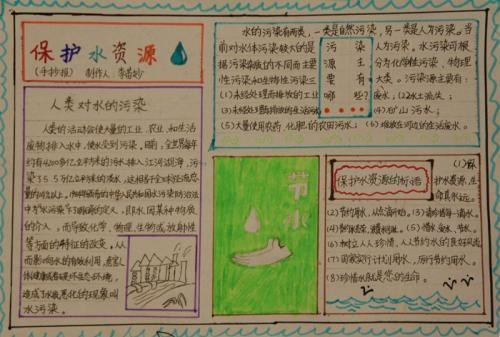 保护水资源
(手抄报) 制作人:李
人类对水的污染
人类的活动会使大量的工业、农业和生活
废物排入水中,使水受到污染。目前,全世界每年
约有4200多亿立方米的污水排入江河湖海,污
染5.5万亿立方米的淡水,这相当于全球径流总
量的14%以上。1984年颁布的中华人民共和国水污染防治法
中为"水污染"下了明确的定义,即水体因某种物质
的介入,而导致化学、物理、生物或放射性
等方面的特征的改变,从
而影响水的有效利用,危害人
体健康或者破坏生态环境,
造成水质恶化的现象叫
水污染。
水的污染有两类,一类是自然污染,另一类是人为污染。当
前对水体污染较大的是人为污染。水污染可根
据污染杂质的不同而主要分为化学性污染、物理
性污染和生物性污染三大类。污染源主要有:
污染
源主
要有
哪些?
(1)未经处理而排放的工业废水;(2)水土流失;
(3)未经处理而排放的生活污水;(4)矿山污水;
(5)大量使用农药、化肥的农田污水;(6)堆放在河边的生活废水。
节水
保护水资源的标语
(1)保护水资源,生命真永远。
(2)节约用水,从点滴开始。(3)请珍惜每一滴水。
(6)树立人人珍惜、人人节约水的良好风尚
(7)国家实行计划用水,厉行节约用水。
(8)珍惜水就是您的生命。